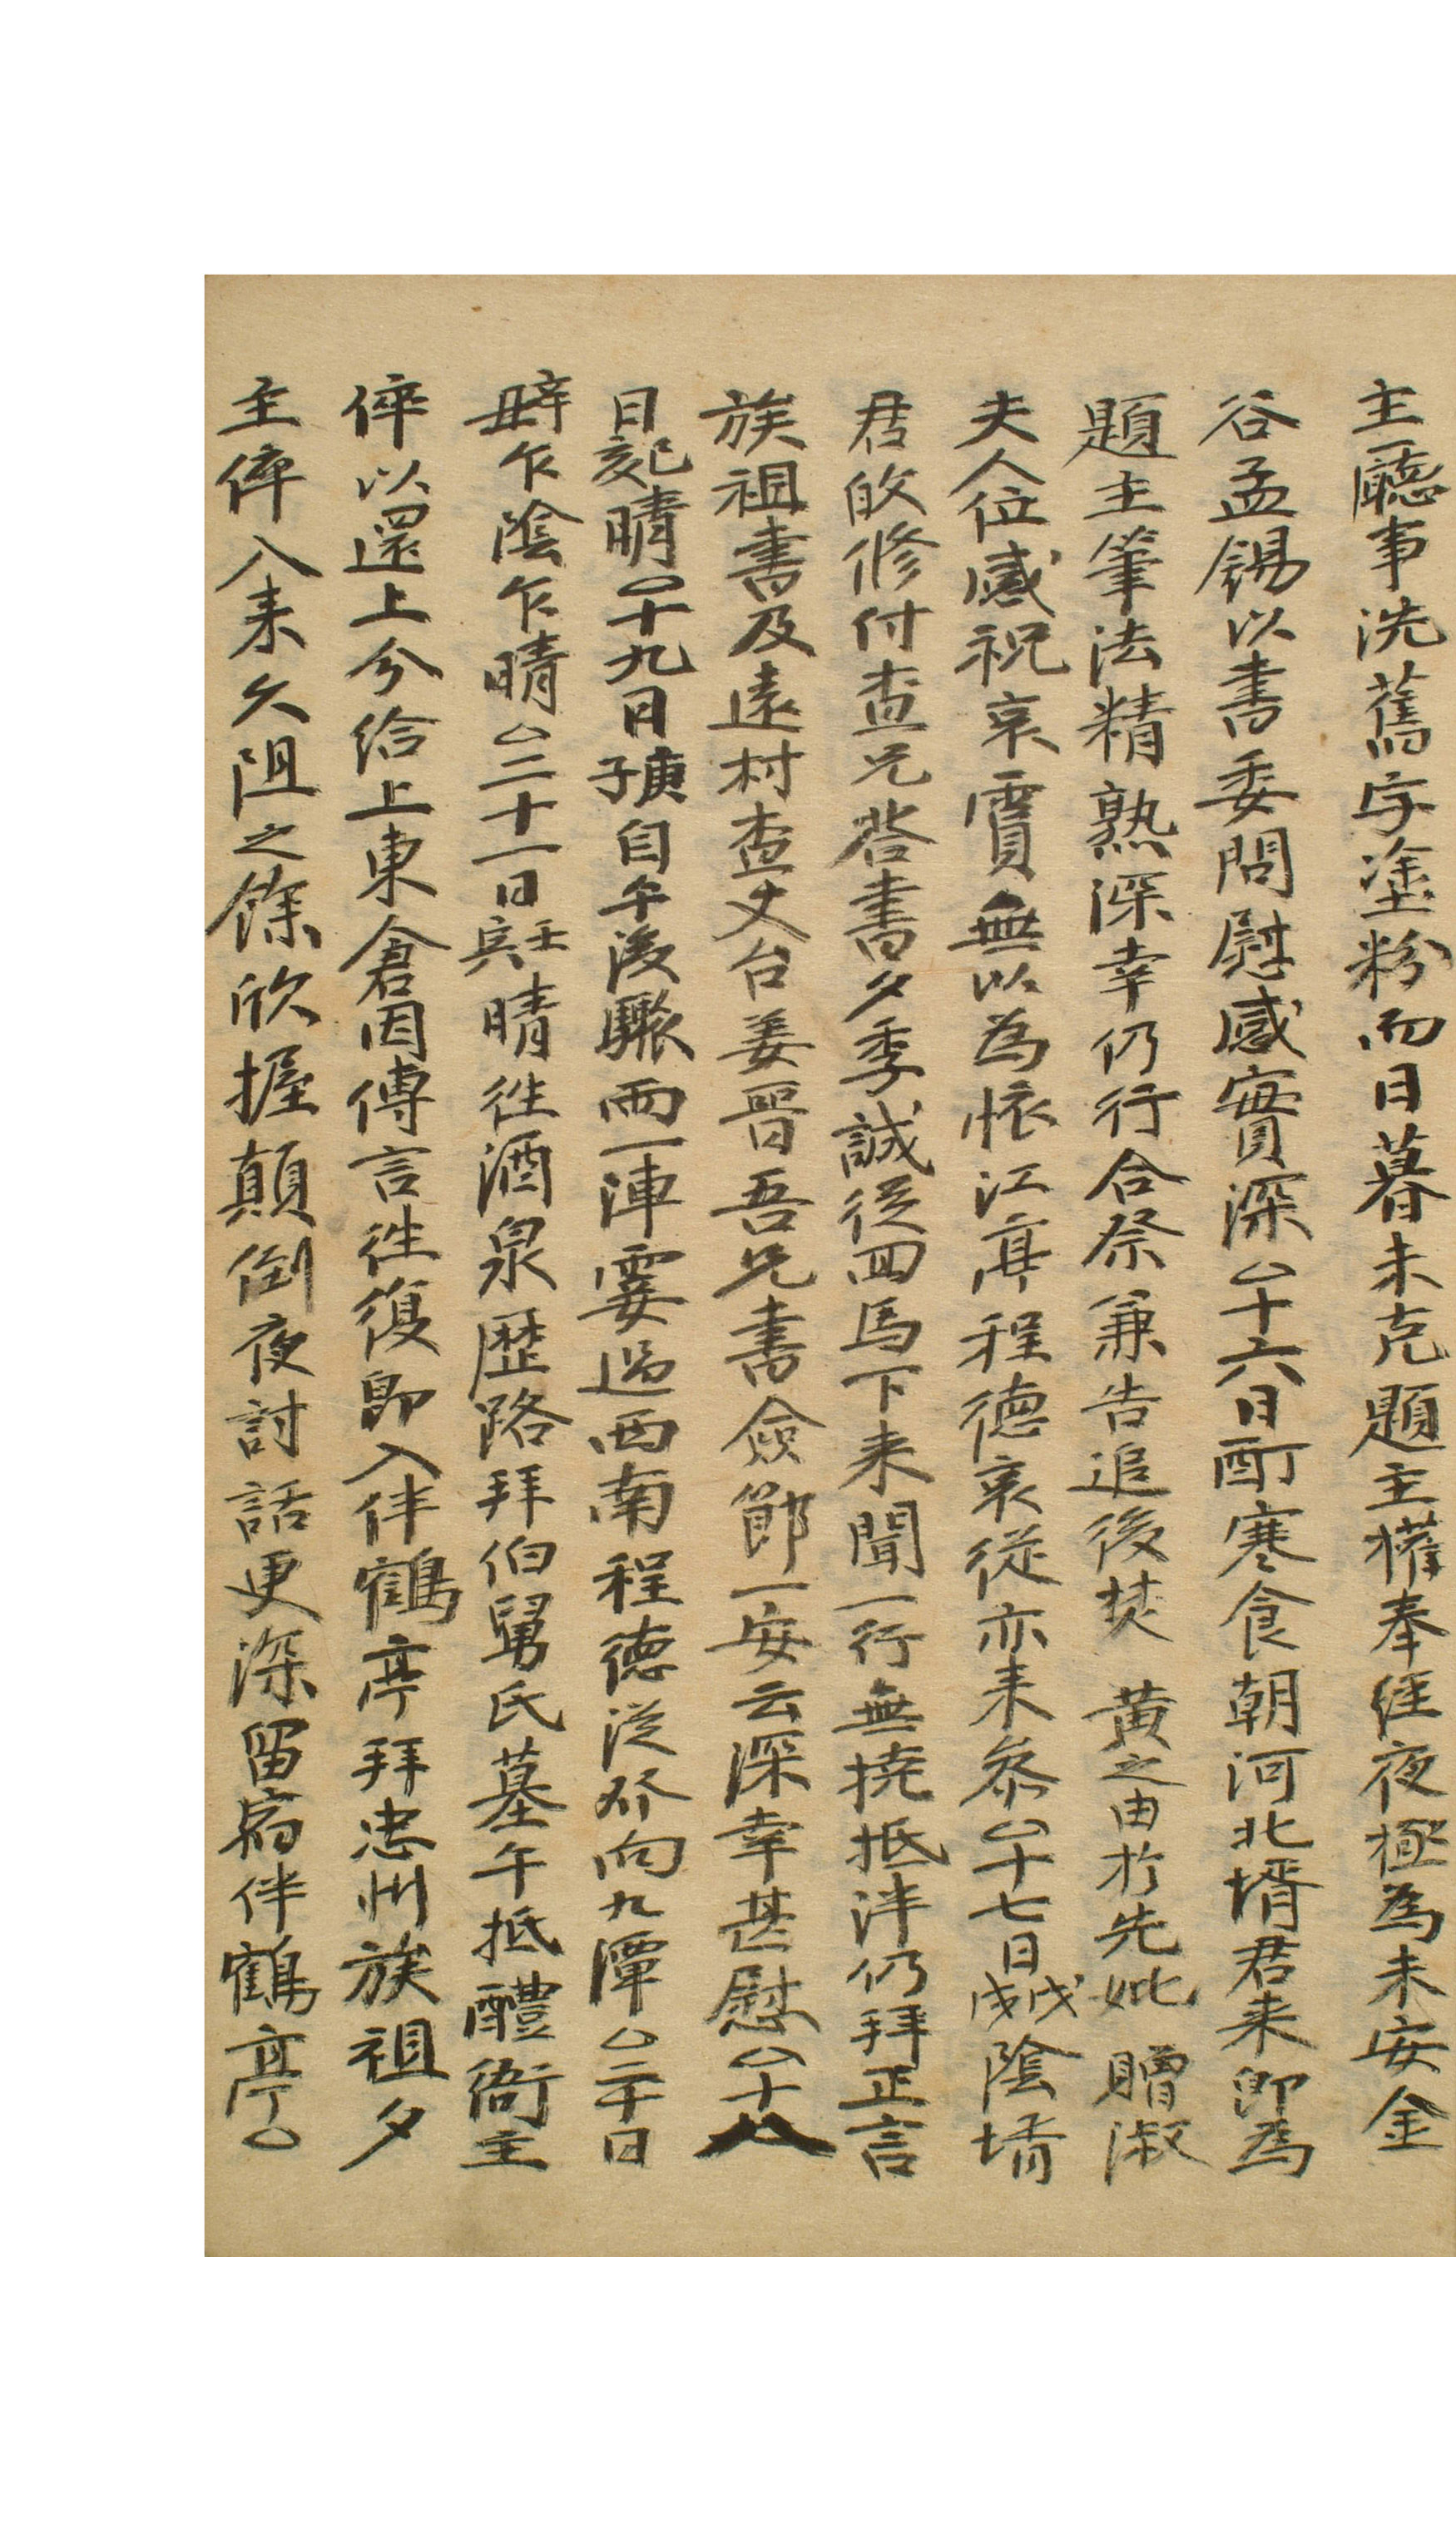 主廳事洗舊字塗粉而日暮未克題主權奉經夜極為未安金
谷孟錫以書委問慰感實深○十六日丁酉寒食朝河北壻君来即為
題主筆法精熟深幸仍行合祭兼告追後焚 黄之由於先妣 贈淑
夫人位感祝哀賣無以為懷江亭程德哀從亦来叅○十七日戊戌陰壻
君皎修付査兄答書夕季誠從回馬下来聞一行無撓抵泮仍拜正言
族祖書及遠村査丈台姜晋吾兄書僉節一安云深幸甚慰○十八
日己亥晴○十九日庚子自午後驟雨一陣霎過西南程德從發向九潭○二十日
辛丑乍陰乍晴○二十一日壬寅晴徃酒泉歷路拜伯舅氏墓午抵醴衙主
倅以還上分給上東倉因傳言徃復即入伴鶴亭拜忠州族祖夕
主倅入来久阻之餘欣握顛倒夜討話更深留宿伴鶴亭○